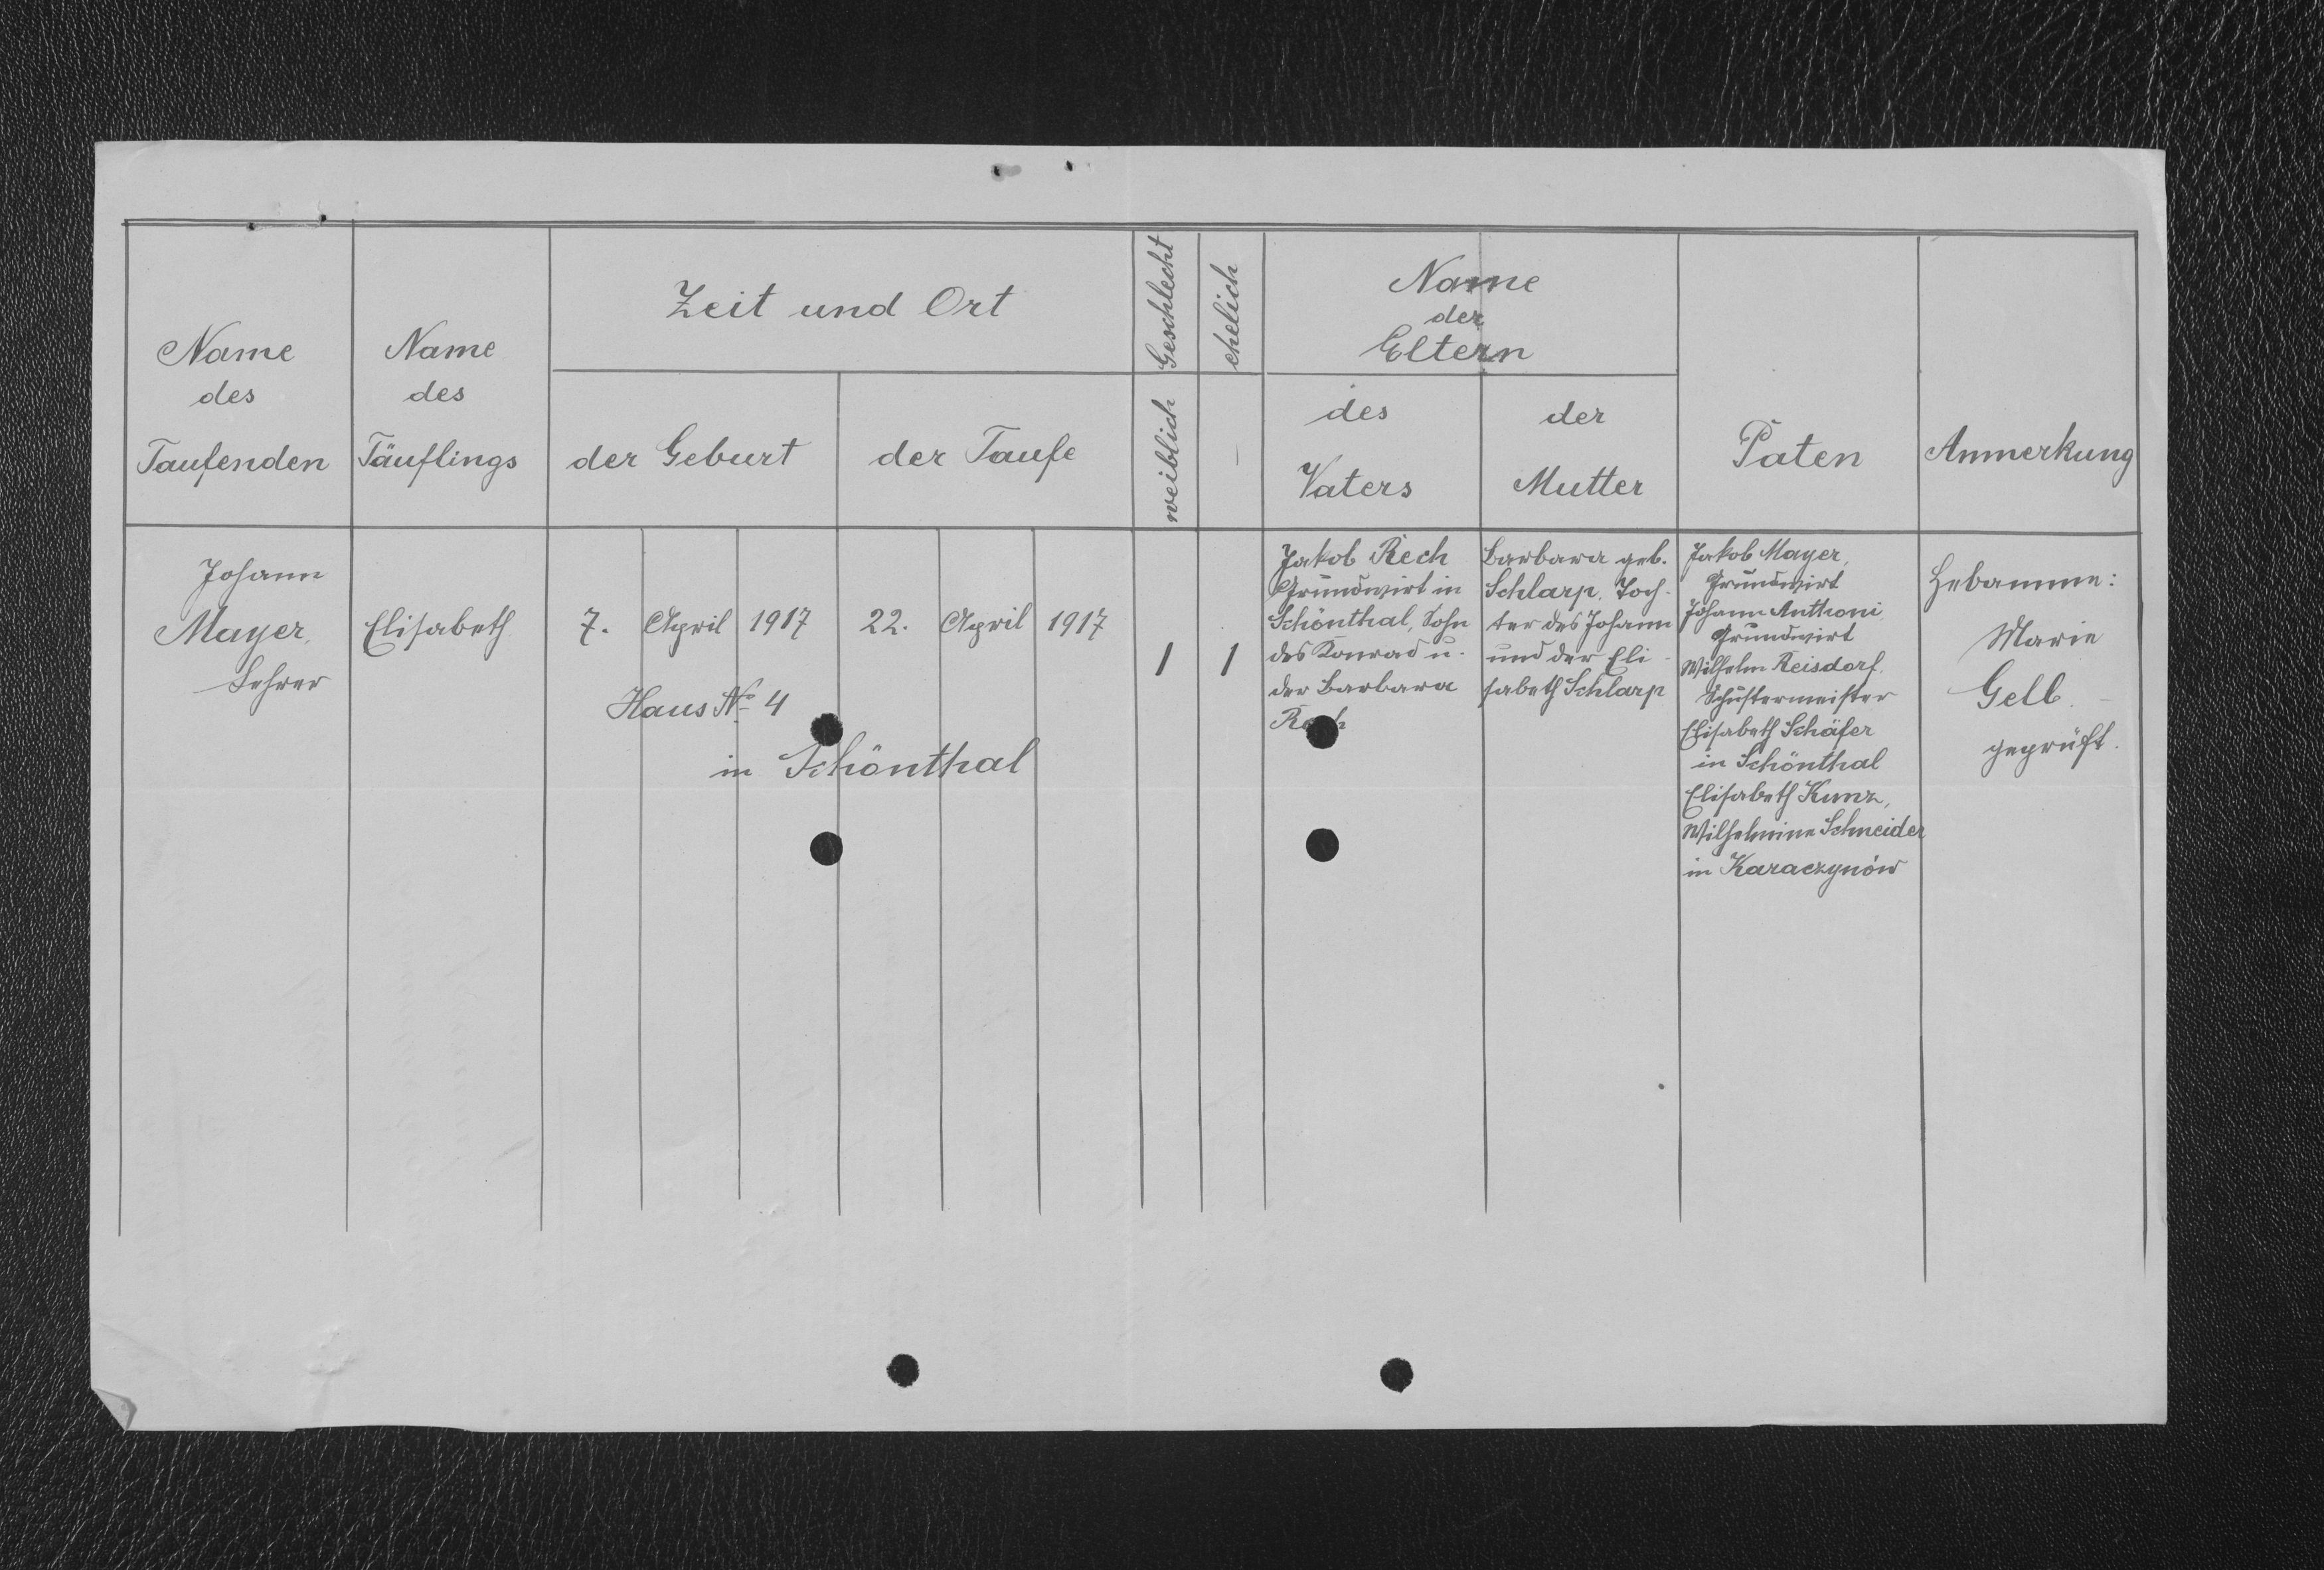 Name
des
Taufenden
Name
des
Täuflings
Zeit und Ort
der Geburt
der Taufe
Geschlecht
weiblich
ehelich
Name
der
Eltern
des
Vaters
der
Mutter
Paten
Anmerkung
Johann
Mayer,
Lehrer
Elisabeth
7. April 1917
22. April 1917
Haus No 4
in Schönthal
1
1
Jakob Rech
Grundwirt in
Schönthal, Sohn
des Konrad u.
der Barbara
Rech
Barbara geb.
Schlarp, Toch-
ter des Johann
und der Eli-
sabeth Schlarp
Jakob Mayer,
Grundwirt
Johann Anthoni,
Grundwirt
Wilhelm Reisdorf,
Schustermeister
Elisabeth Schäfer
in Schönthal
Elisabeth Kunz,
Wilhelmine Schneider
in Karaczynów
Hebamme:
Marie
Gelb. -
geprüft.